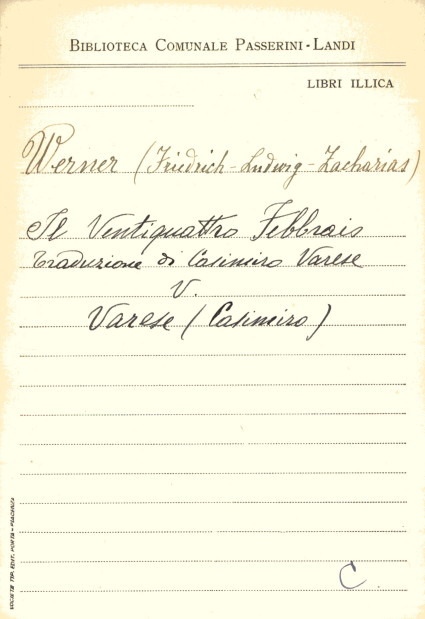 BIBLIOTECA COMUNALE PASSERINI-LANDI
LIBRI ILLICA
Werner (Friedrich-Ludwig-Zacharias)
Il Ventiquattro Febbraio
Traduzione di Casimiro Varese
V.
Varese (Casimiro)
C
SOCIETÀ TIP. EDIT. PORTA-PIACENZA